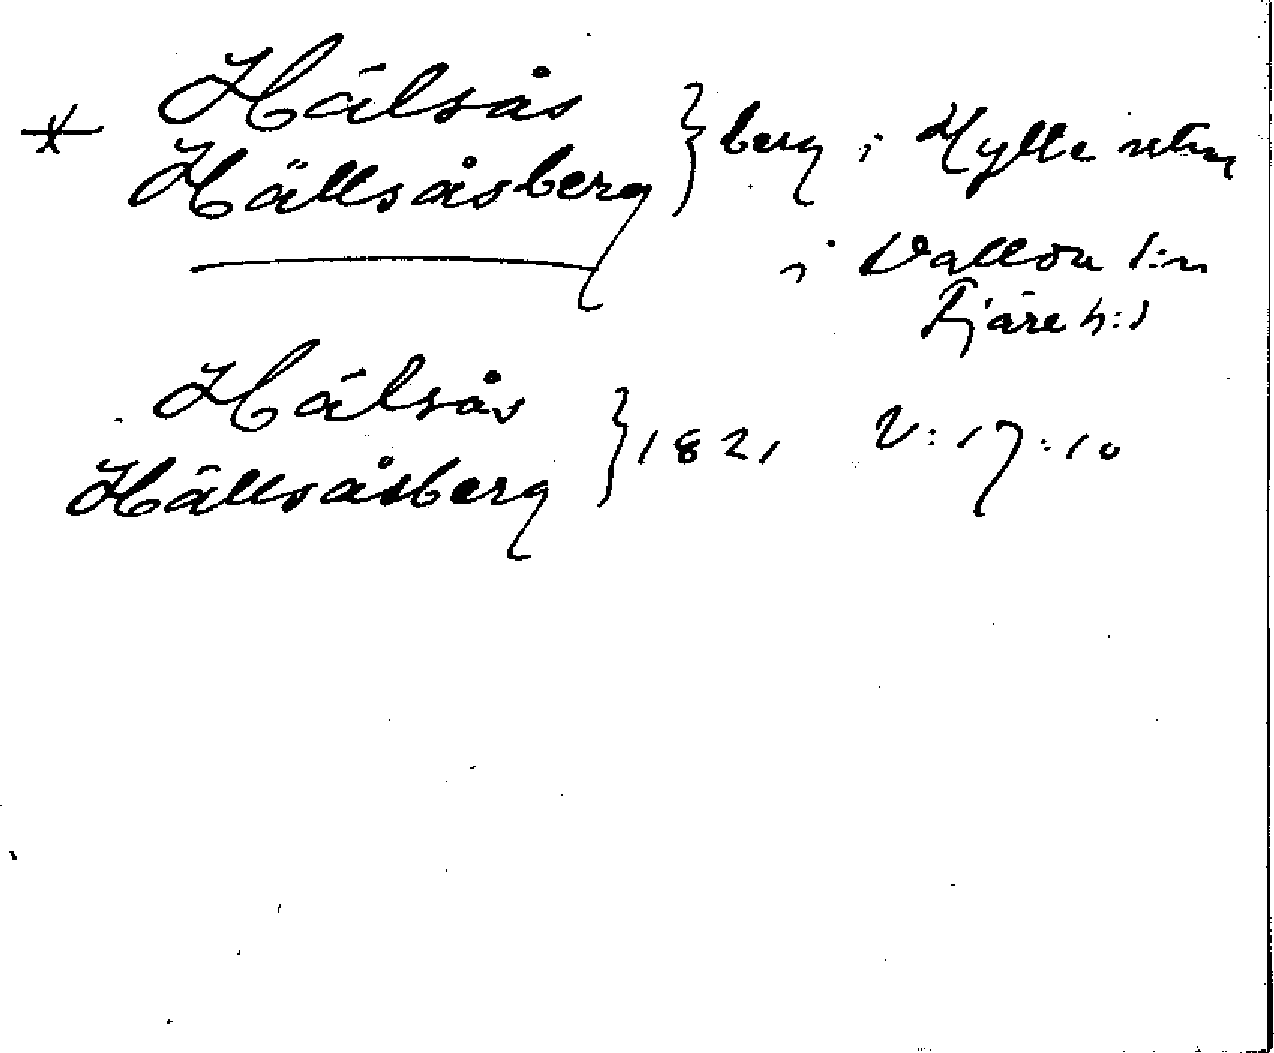 * Hälsås
Hällsåsberg } berg i Hylle utm
i Vallda s:n
Fjäre h:d
Hälsås
Hällsåsberg } 1821 V:17:10